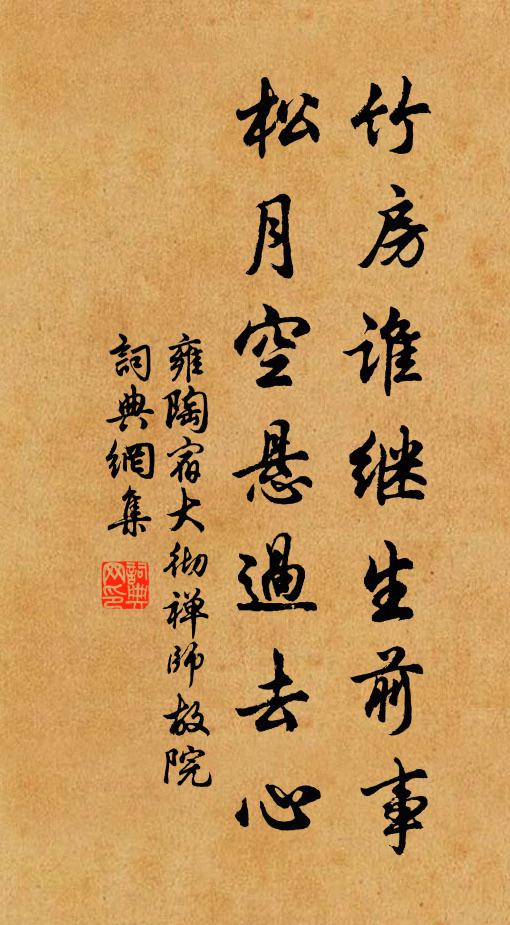 竹房谁继生前事
松月空悬過去心
雍陶宿大彻禅師故院
詞典網集
詞典
网印